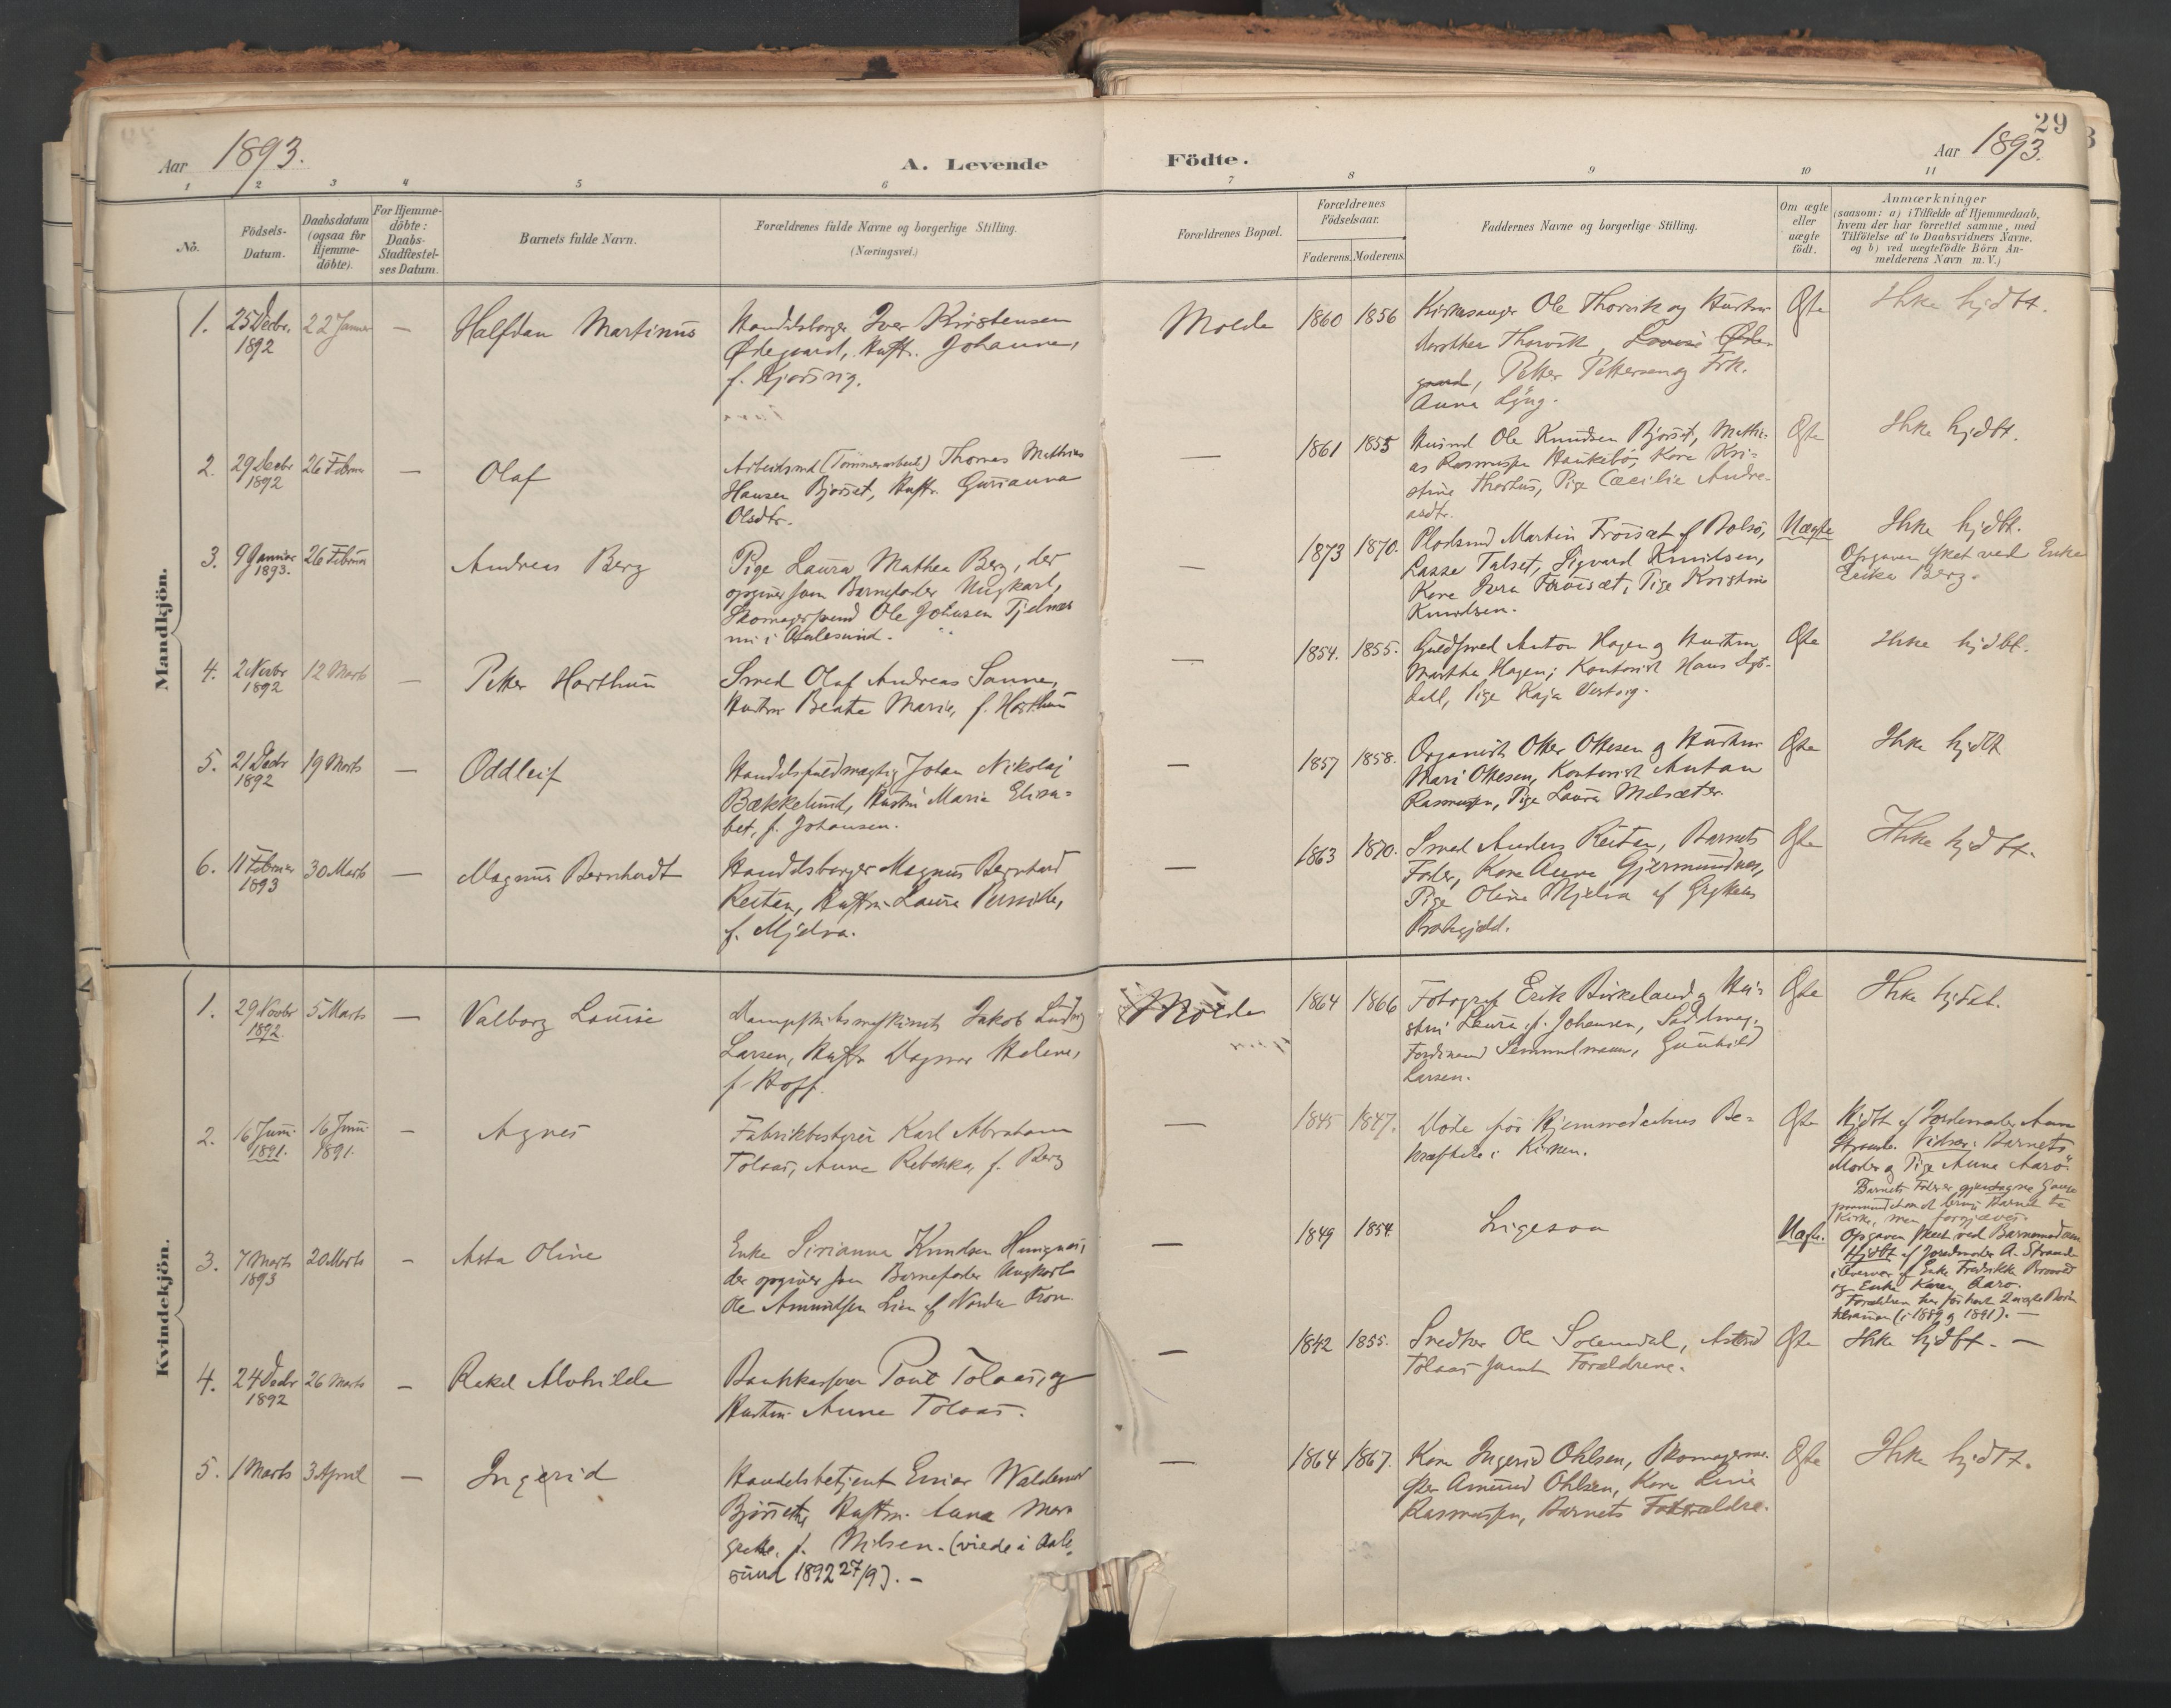 29
Aar 1893.
A. Levende Fødte.
Aar 1893.
1 2 3 4 5 6 7 8 9 10 11
No.
Födsels-Datum.
Daabsdatum (ogsaa for Hjemme-döbte).
For Hjemme-döbte: Daabs-Stadfæstel-ses Datum.
Barnets fulde Navn.
Forældrenes fulde Navne og borgerlige Stilling.
(Næringsvei.)
Forældrenes Bopæl.
Forældrenes Födselsaar.
Faderens. Moderens.
Faddernes Navne og borgerlige Stilling.
Om ægte eller uægte födt.
Anmærkninger
(saasom: a) i Tilfælde af Hjemmedaab,
hvem der har forrettet samme, med
Tilföielse af to Daabsvidners Navne.
og b) ved uægtefödte Börn An-
melderens Navn m. V.)
Mandkjön.
1. 25 Decbr. 1892 22 Januar — Halfdan Martinus
Handelsborger Iver Kristensen
Ødegaard, Hustr. Johanne,
Molde 1860 1856
Kirkesanger Ole Thorvik og Hustru
Dorothea Thorvik, Lovise Øde-
gaard, Petter Pettersen og Frk.
Anna Lyng.
Ægte
Ikke hjdbt.
2. 29 Decbr 1892 26 Februar — Olaf
Arbeidsmd (Tömmerarbeid.) Thomas Mathias
Hansen Bjørset, Hustr. Gurianna
Olsdtr.
— 1861 1855
Husmd Ole Knudsen Bjørset, Mathi-
as Rasmussen Haukebø, Kone Kri-
stine Thorhus, Pige Cæcilie Andre-
asdtr.
Ægte
Ikke hjdbt.
3. 9 Januar 1893. 26 Februar Andreas Berg
Pige Laura Mathea Berg, der
opgiver som Barnefader Ungkarl,
Skomagersvend Ole Johnsen Tjelnes
nu i Aalesund.
— 1873 1870.
Martin Fröisæt af Bolsö,
Lasse Talset, Sigvard Knudsen,
Kone Fröisæt, Pige Kristine
Knudsen.
Uægte
Ikke hjdbt.
Opgaven sket ved Enke
Erika Berg.
4. 2 Novbr 1892 12 Marts — Petter Horthun
Smed Olaf Andreas Sanne,
Hustru Beate Marie, f. Horthun
— 1854. 1855.
Guldsmed Anton Hagen og Hustru
Martha Hagen; Kontorist Hans
dahl, Pige Kaja Vestvig.
Ægte
Ikke hjdbt.
5. 21 Decbr 1892 19 Marts — Oddleif
Handelsfuldmægtig Johan Nikolaj
Bækkelund, Hustru Marie Elisa-
bet, f. Johansen.
— 1857 1858.
Organist Otter Ottesen og Hustru
Mari Ottesen, Kontorist Anton
Rasmussen, Pige Laura Melsæter.
Ægte
Ikke hjdbt
6. 11 Februar 1893 30 Marts — Magnus Bernhardt
Handelsborger Magnus Bernhard
Reiten, Hustru Laura
f. Mjelva.
— 1863 1870.
Smed Anders Reitan, Barnets
Fader, Kone Anne Gjermundnes,
Pige Oline Mjelva af Grytten
Præstegjeld.
Ægte
Ikke hjdbt.
Kvindekjön.
1. 29 Novbr 1892. 5 Marts — Valborg Louise
Dampskibsmaskinist Jakob Ludvig
Larsen, Hustr Dagmar Helene,
f. Hoff.
Molde 1864 1866
Fotograf Erik Birkeland og Hu-
stru Laura f. Johansen, Sadelmag.
Ferdinand Semmelmann, Gunhild
Larsen.
Ægte
Ikke hjdbt.
2. 16 Juni. 1891. 16 Juni 1891. — Agnes
Fabrikbestyrer Karl Abraham
Tolaas, Anne Rebekka, f. Berg
— 1845 1847.
Døde før Hjemmedaabens Be-
kræftelse i Kirken.
Ægte
Hjdbt af Jordemoder Anne
Strande. Vidner: Barnets
Moder og Pige Anna Aarø.
Barnets Fader er gjentagne Gange
Barnet til
Kirke, men forgjæves.
3. 7 Marts 1893 20 Marts — Asta Oline
Enke Sirianna Knudsen Hungnes,
der opgiver som Barnefader Ungkarl
Ole Amundsen Lien af Nordre Fron.
— 1849 1854
Ligesaa
Uægte.
Opgaven skeet ved Barnemoderen
Hjdbt af Jordmoder A. Strande
i Overvær af Enke Fredrikke
og Enke Karen Aarø.
Forældrene har før havt 2 uægte Børn
tilsammen (i 1889 og 1891). —
4. 24 Decbr 1892 26 Marts — Rakel Mathilde
Bankkasserer Povt Tolaas, og
Hustru Anne Tolaas.
— 1842 1855.
Snedker Ole Solemdal, Astrid
Tolaas samt Forældrene.
Ægte
Ikke hjdbt. —
5. 1 Marts 3 April — Ingerid
Handelsbetjent Einar Waldemar
Bjørseth, Hustru Anna Mar-
grethe, f. Nilsen. (viede i Aale-
sund 1892 27/9). —
— 1864 1867.
Kone Ingerid Ohlsen, Skomagerme-
ster Amund Ohlsen, Kone Lina
Rasmussen, Barnets Forældre.
Ægte
Ikke hjdbt.